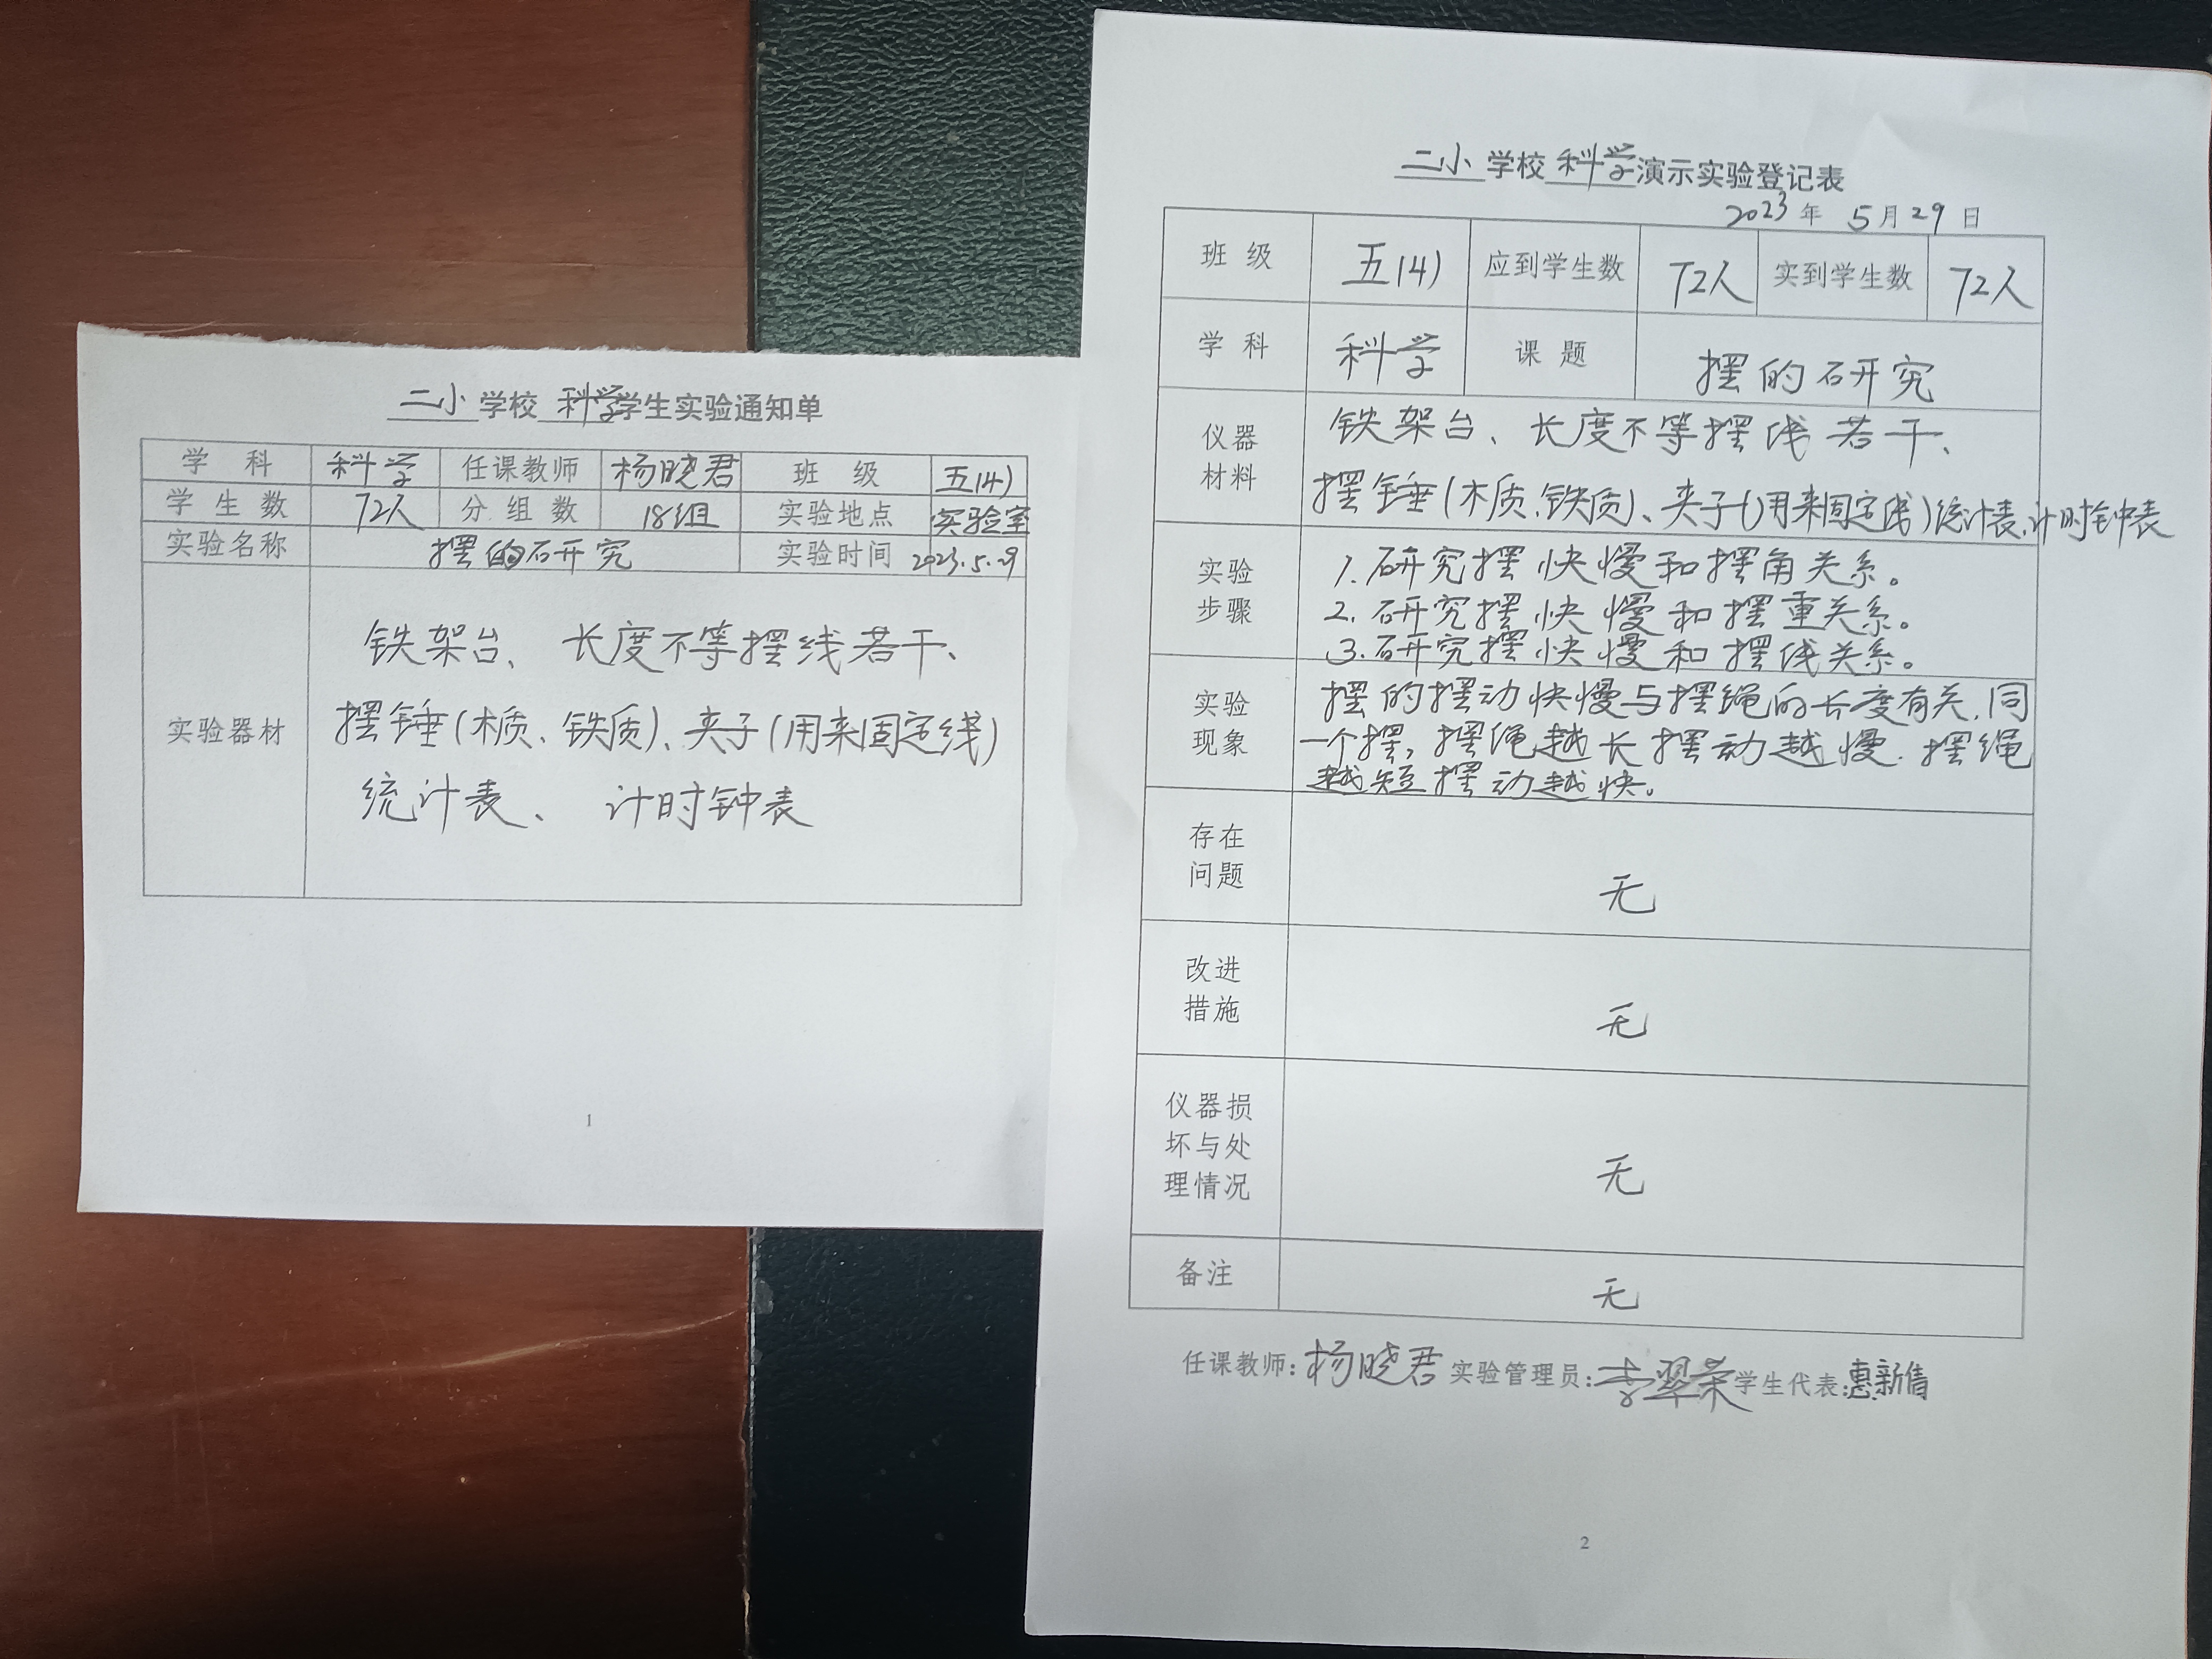 二小 学校 科学 学生实验通知单
学 科 科学 任课教师 杨晓君 班 级 五(4)
学 生 数 72人 分 组 数 18组 实验地点 实验室
实验名称 摆的研究 实验时间 2023.5.29
实验器材
铁架台、长度不等摆线若干、
摆锤(木质、铁质)、夹子(用来固定线)
统计表、计时钟表
1
二小 学校 科学 演示实验登记表
2023 年 5 月 29 日
班 级 五(4) 应到学生数 72人 实到学生数 72人
学 科 科学 课 题 摆的研究
仪器
材料
铁架台、长度不等摆线若干、
摆锤(木质、铁质)、夹子(用来固定线)统计表、计时钟表
实验
步骤
1.研究摆快慢和摆角关系。
2.研究摆快慢和摆重关系。
3.研究摆快慢和摆线关系。
实验
现象
摆的摆动快慢与摆绳的长度有关,同
一个摆,摆绳越长摆动越慢.摆绳
越短摆动越快。
存在
问题
无
改进
措施
无
仪器损
坏与处
理情况
无
备注 无
任课教师:杨晓君 实验管理员: 学生代表:惠新倩
2